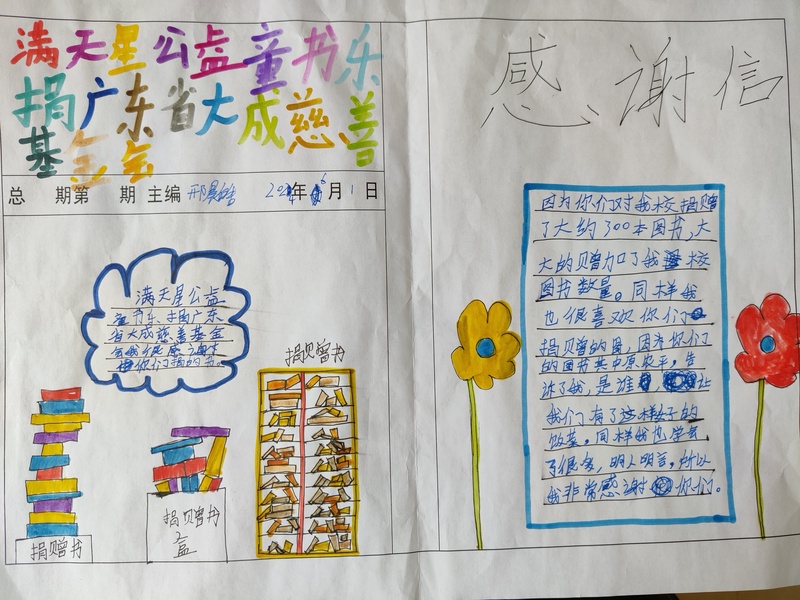 满天星公益童书乐
捐广东省大成慈善
基金会
总 期第 期 主编 邢 年6月1日
满天星公益
童书乐捐广东
省大成慈善基金
会我很感谢
你们捐的书。
捐贝赠书
捐贝赠书
捐贝赠书
盒
感谢信
因为你们对我校捐赠
了大约300本图书,大
大的赠加了我校
图书数量。同样我
也很喜欢你们
捐赠的图,因为你们
的图书其中原来平,告
诉了我,是谁让
我们有了这样好的
饭菜。同样我也学会
了很多,明人明言,所以
我非常感谢你们。